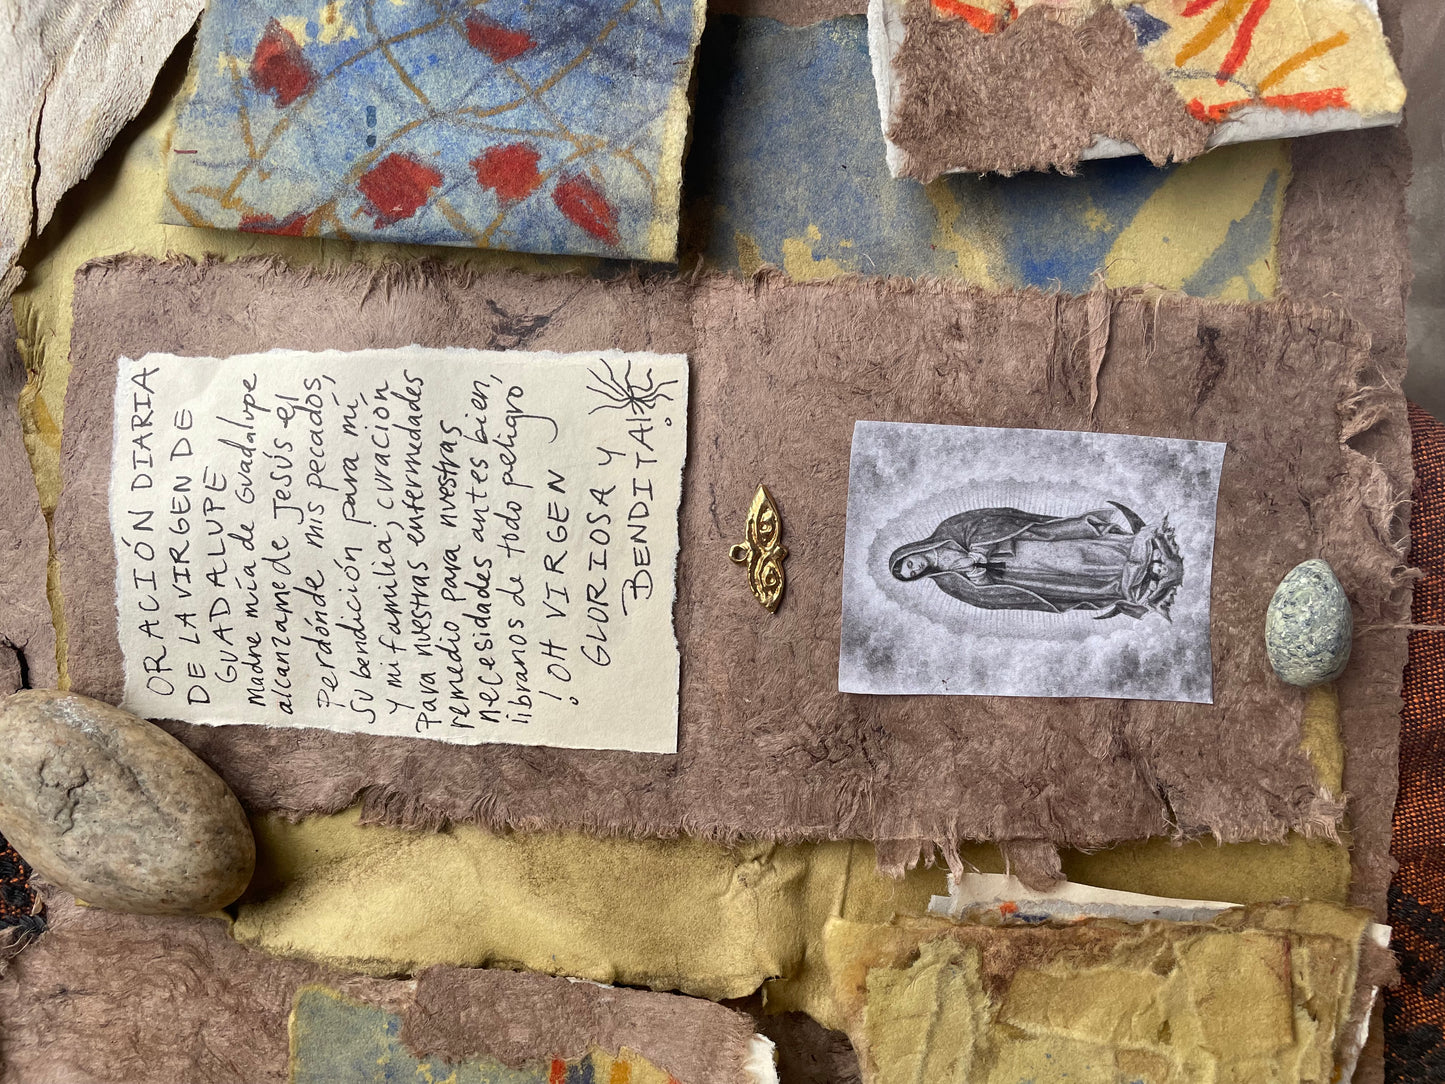 ORACIÓN DIARIA
DE LA VIRGEN DE
GUADALUPE
Madre mía de Guadalupe
alcanzame de Jesús el
Perdónde mis pecados,
Su bendición para mí,
y mi familia, curación
Para nuestras enfermedades
remedio para nuestras
necesidades antes bien,
libranos de todo peligro
¡OH VIRGEN
GLORIOSA Y
BENDITA!